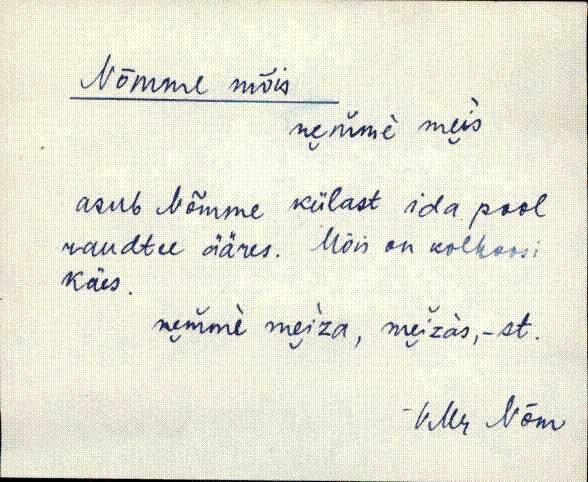 Nõmme mõis
ne̮m̆mè me̮ìs
asub Nõmme külast ida pool
raudtee ääres. Mõis on kolhoosi
käes.
ne̮m̆mè me̮ìza, me̮ĭzàs, -st.
VMr Nõm